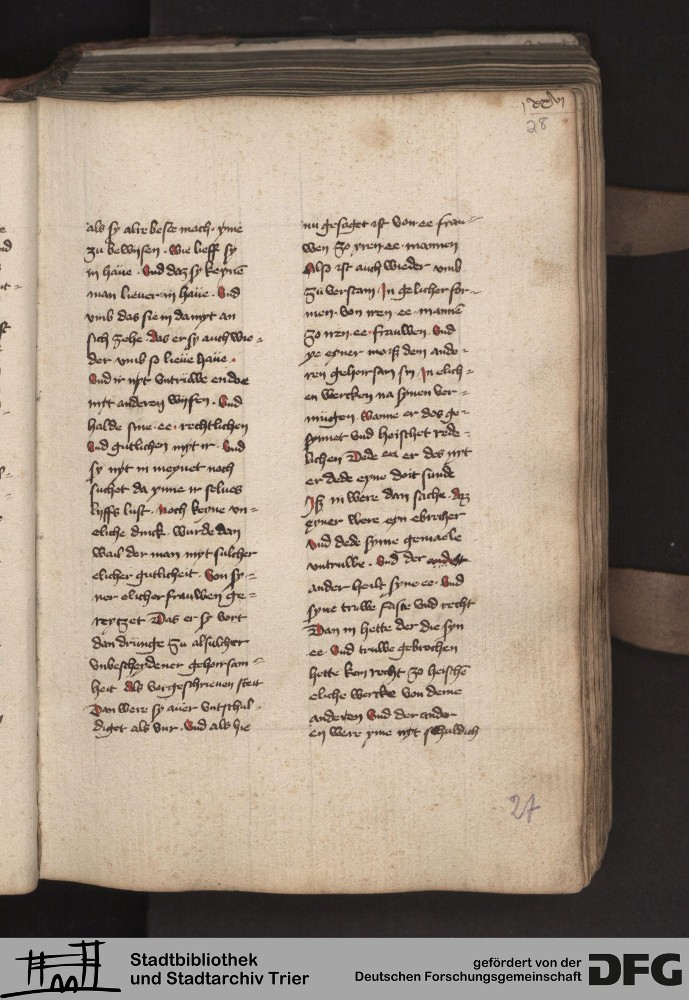 28
als sy alir beste mach · yme
zu bewysen · wie lieff sy
in haue · Vnd daz sy keyne
man lieuer in haue · Vnd
vmb das sie in damyt an
sich zehe · das er sy auch wie =
der vmb so lieue haue ·
Vnd ir nyt vntruwe en doe
mit anderen wysen · Vnd
halde syne · ee · rechtlichen
Vnd gutlichen myt ir · Vnd
sy nyt in meynet noch
suchet da ynne ir selues
lyffs lust · Noch keyne vn =
eliche dinck · wurde dan
wail der man myt sulcher
elicher gutlicheit · Von sy =
ner elicher frauwen ge =
reytzet Das er sy vort
dan drunge zu alsulcher
vnbescheydener gehorsam =
heit Als vorgeschrieuen steit
Dan were sy auer vntschul =
diget als vur · Vnd als hie
nu gesaget ist von ee frau =
wen zo yren ee · mannen
Also ist auch wieder vmb
zu verstain In gelicher for =
men · von iren · ee · manne
zo iren · ee · frauwen · Vnd
ye eyner moiß dem ande =
ren gehorsam sin In elich =
en wercken na synen ver =
mugen · Wanne er des ge =
synnet vnd heischet rede =
lichen Dede er des nyt
er dede eyne doit sunde
Iß in were dan sache · daz
eyner were eyn ebrecher
Vnd dede syme gemaele
vntruwe · Vnd der
ander heilt syne ee · Vnd
syne truwe faste vnd recht
Dan in hette der die syn
· ee · Vnd truwe gebrochen
hette kein recht zo heischen
eliche wercke von deme
anderen Vnd der ander
en were yme nyt schuldich
27
Stadtbibliothek
und Stadtarchiv Trier
gefördert von der
Deutschen Forschungsgemeinschaft
DFG